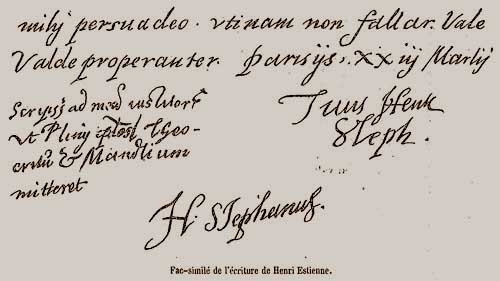 mihi persuadeo. vtinam non fallar. Vale
Valde properanter. Parisijs. XX iij Martij
Scripsi ad
vt Plinij Theo-
critū & Manilium
mitteret
Tuus Henr
Steph.
H. Stephanus.
Fac-similé de l'écriture de Henri Estienne.